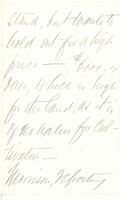 stand, but wants to
hold out for a high
price — $6000.00
Even, which is high
for the land, as it is
of no value for Cul-
tivation —
Morrison, Reporting